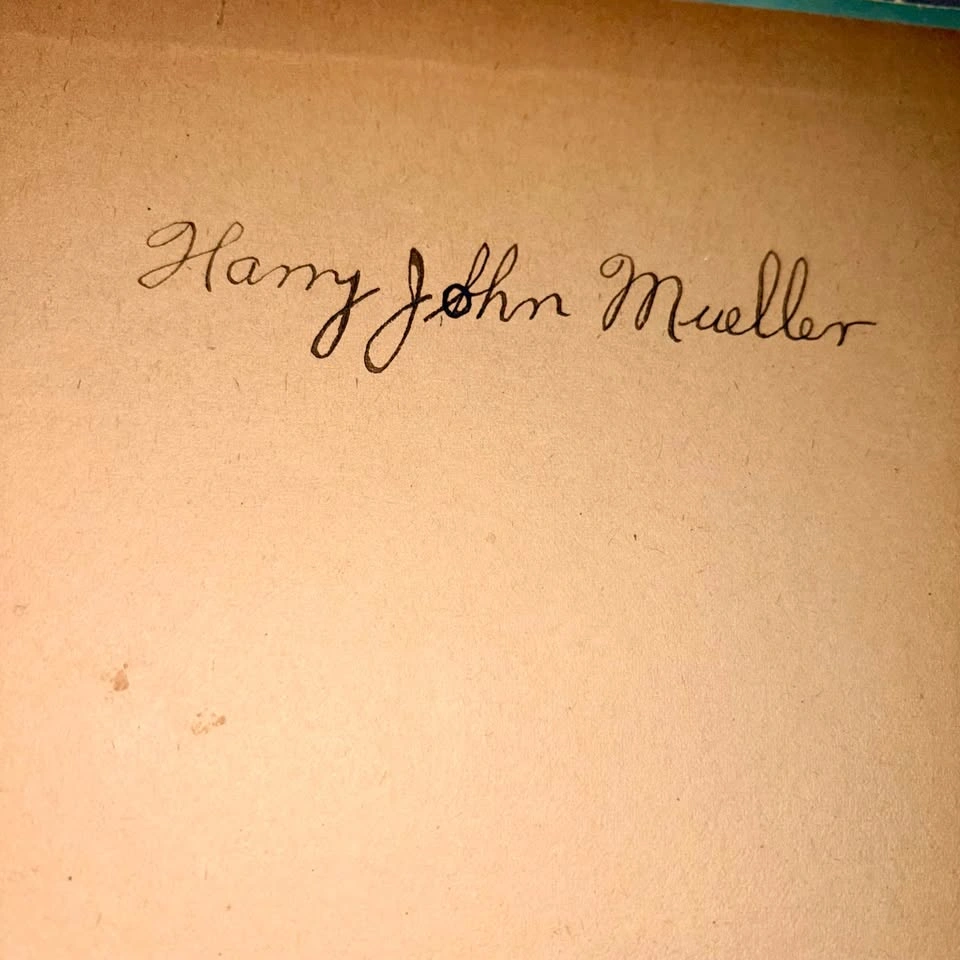 Harry John Mueller